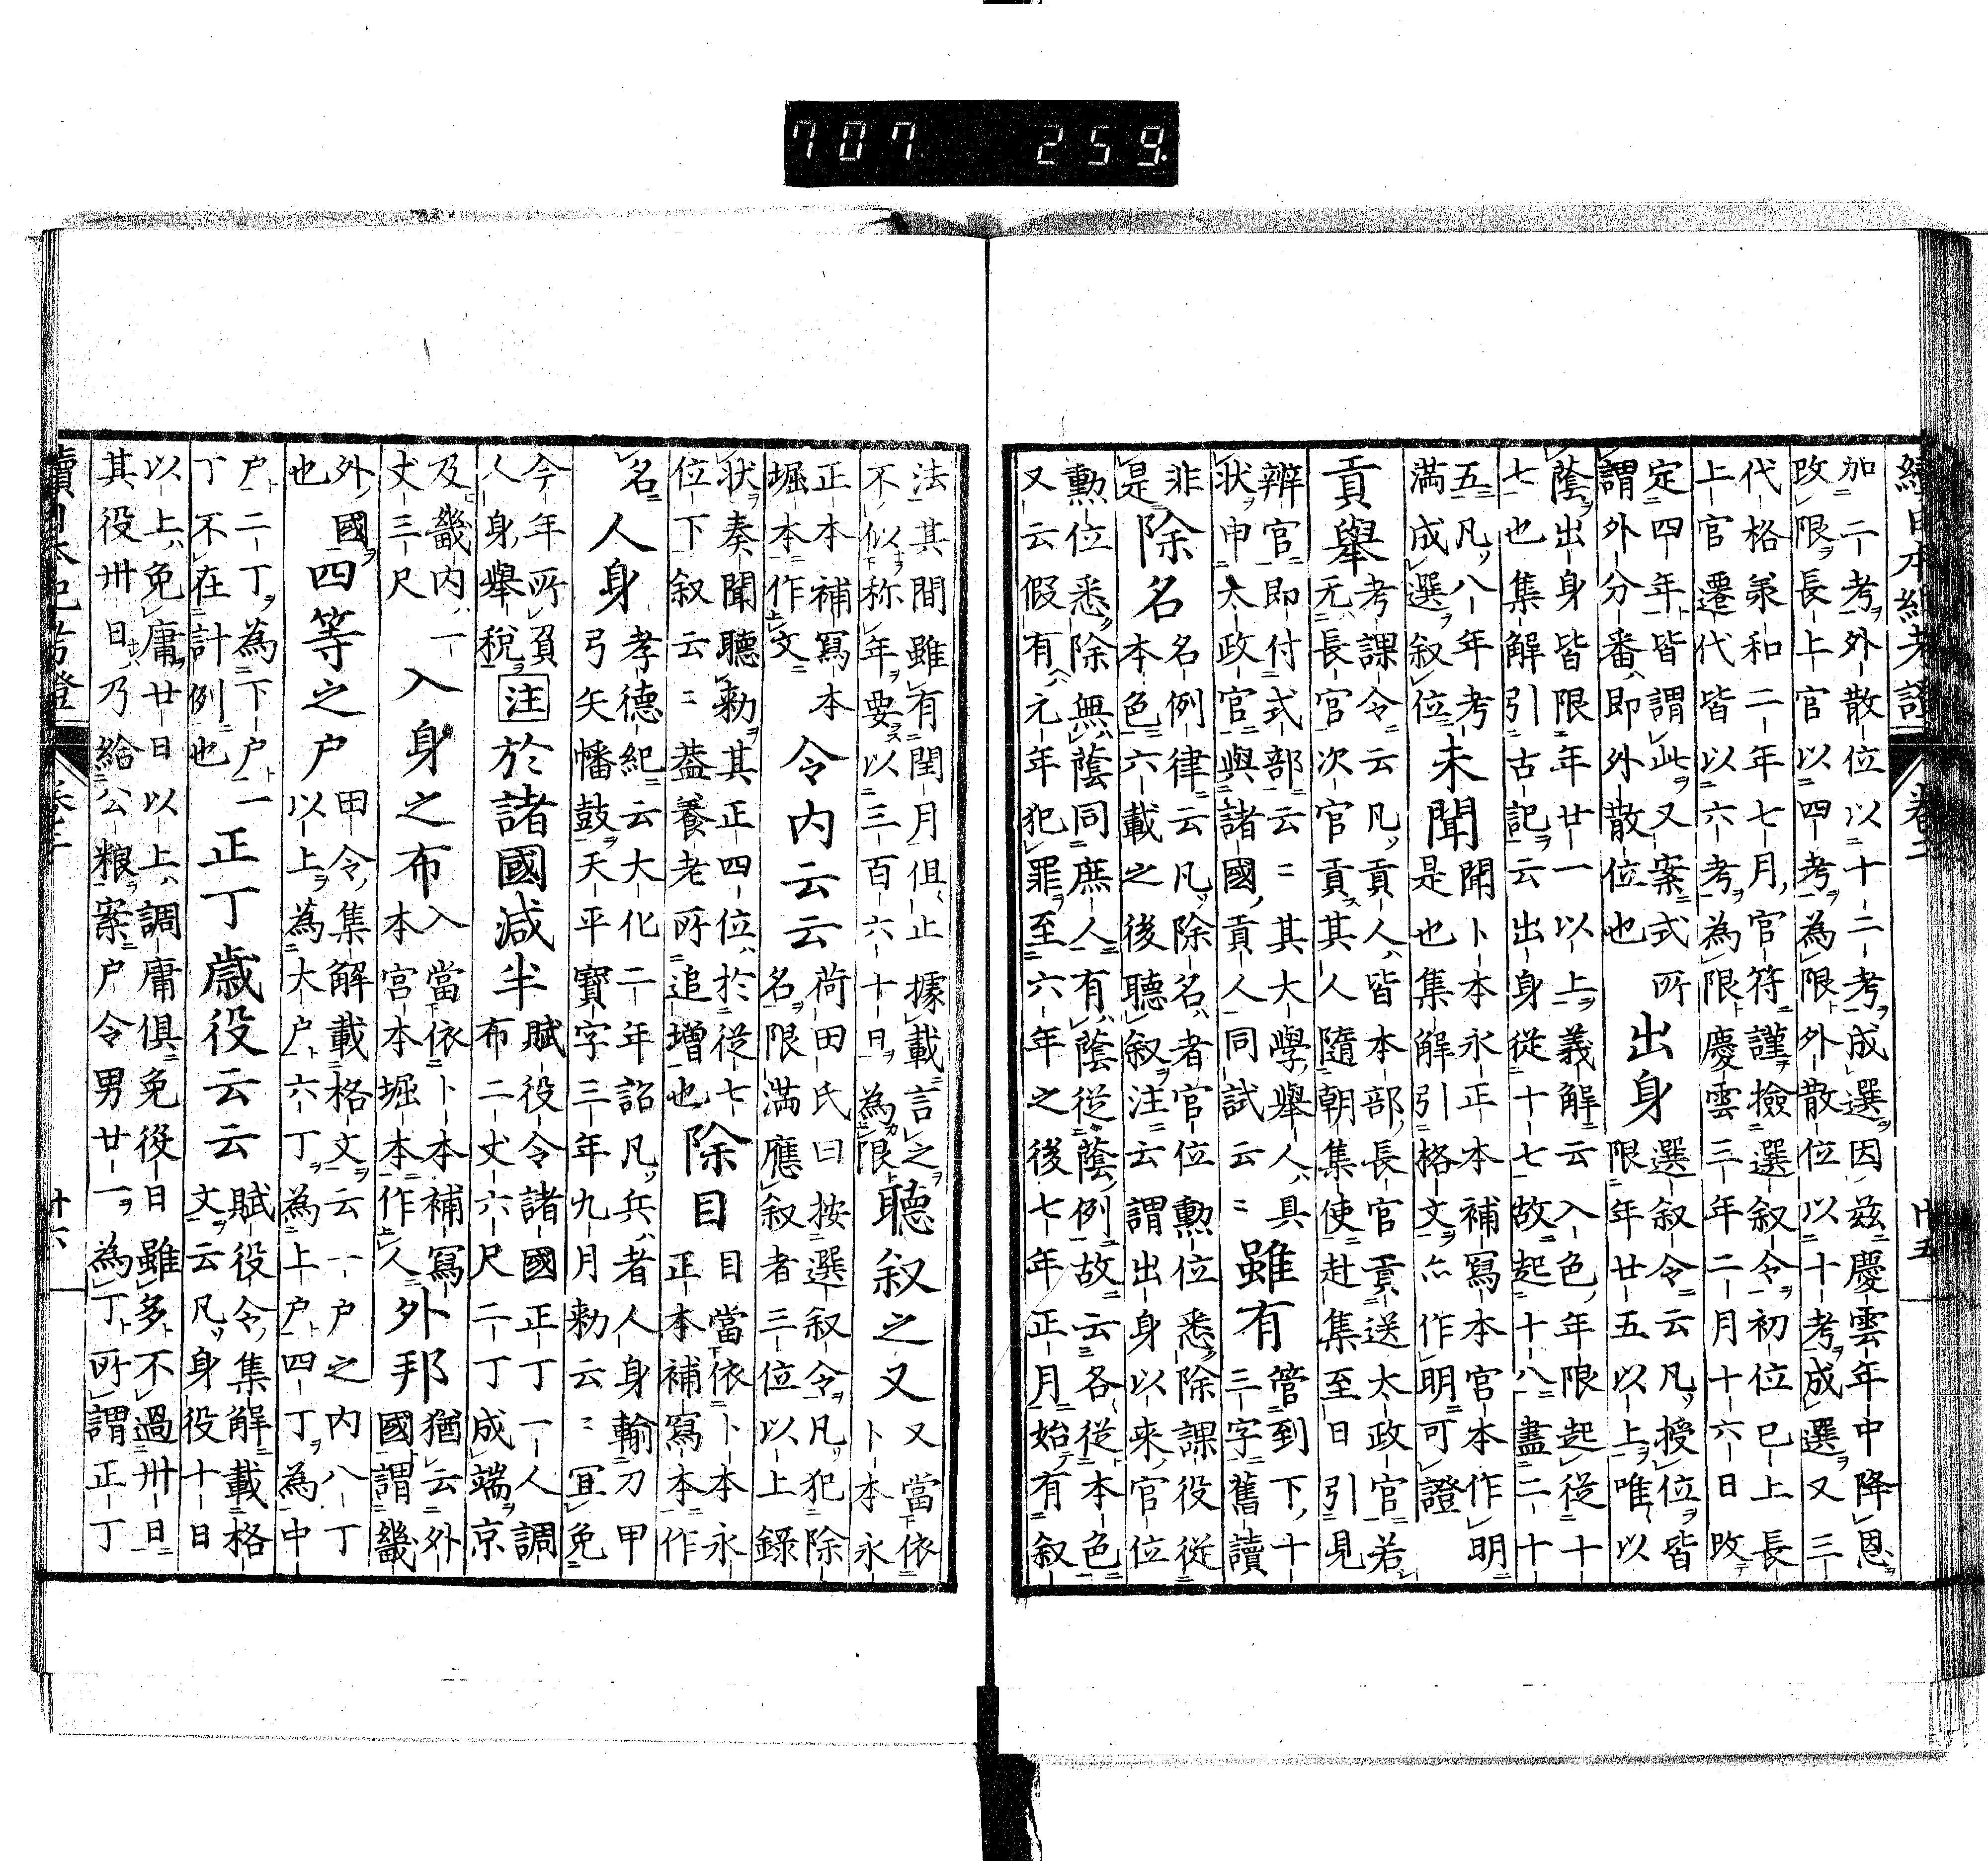 707 259.
續日本紀考證 卷二 廿五
加二考外散位以十二考成選因茲慶雲年中降恩
改限長上官以四考為限外散位以十考成選又三
代格兼和二年七月官符謹撿選叙令初位已上長
上官遷代皆以六考為限慶雲三年二月十六日改
定四年皆謂此又案式所
謂外分番即外散位也
出身
選叙令云凡授位皆
限年廿五以上唯以
蔭出身皆限年廿一以上義解云入色年限起從十
七也集解引古記云出身從十七故起十八盡二十
五凡八年考
滿成選叙位
未聞
聞卜本永正本補寫本官本作明
是也集解引格文亦作明可證
貢舉
考課令云凡貢人皆本部長官貢送太政官若
无長官次官貢其人隨朝集使赴集至日引見
辨官即付式部云〻其大學舉人具
狀申太政官與諸國貢人同試云〻
雖有
管到下十
三字舊讀
非
是
除名
名例律云凡除名者官位勳位悉除課役從
本色六載之後聽叙注云謂出身以来官位
勳位悉除無蔭同庶人有蔭從蔭例故云各從本色
又云假有元年犯罪至六年之後七年正月始有叙
法其間雖有閏月俱止據載言之
不似称年要以三百六十日為限
聽叙之又
又當依
卜本永
正本補寫本
堀本作文
令内云云
荷田氏曰按選叙令凡犯除
名限滿應叙者三位以上錄
狀奏聞聽勅其正四位於從七
位下叙云〻蓋養老所追增也
除目
目當依卜本永
正本補寫本作
名
人身
孝德紀云大化二年詔凡兵者人身輸刀甲
弓矢幡鼓天平寶字三年九月勅云〻冝免
今年所負
人身舉税
注
於諸國減半
賦役令諸國正丁一人調
布二丈六尺二丁成端京
及畿内一
丈三尺
入身之布
入當依卜本補寫
本宮本堀本作人
外邦
猶云外
國謂畿
外國
也
四等之户
田令集解載格文云一户之内八丁
以上為大户六丁為上户四丁為中
户二丁為下户一
丁不在計例也
正丁歳役云云
賦役令集解載格
文云凡身役十日
以上免庸廿日以上調庸俱免役日雖多不過卅日
其役卅日乃給公粮案户令男廿一為丁所謂正丁
續日本紀考證 卷二 廿六